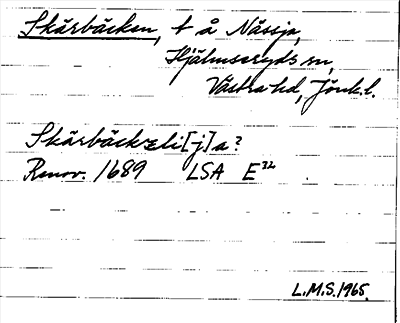 Skärbäcken, t å Nässja,
Hjälmseryds sn,
Västra hd, Jönk.l.
Skärbäckzeli[j]a?
Renov. 1689 LSA E³²
L.M.S. 1965.